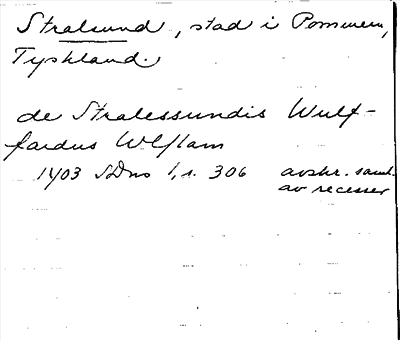 Stralsund, stad i Pommern,
Tyskland.
de Stralessundis Wulf-
fardus Wlflam
1403 SDns 1, s. 306 avskr. saml.
av recesser